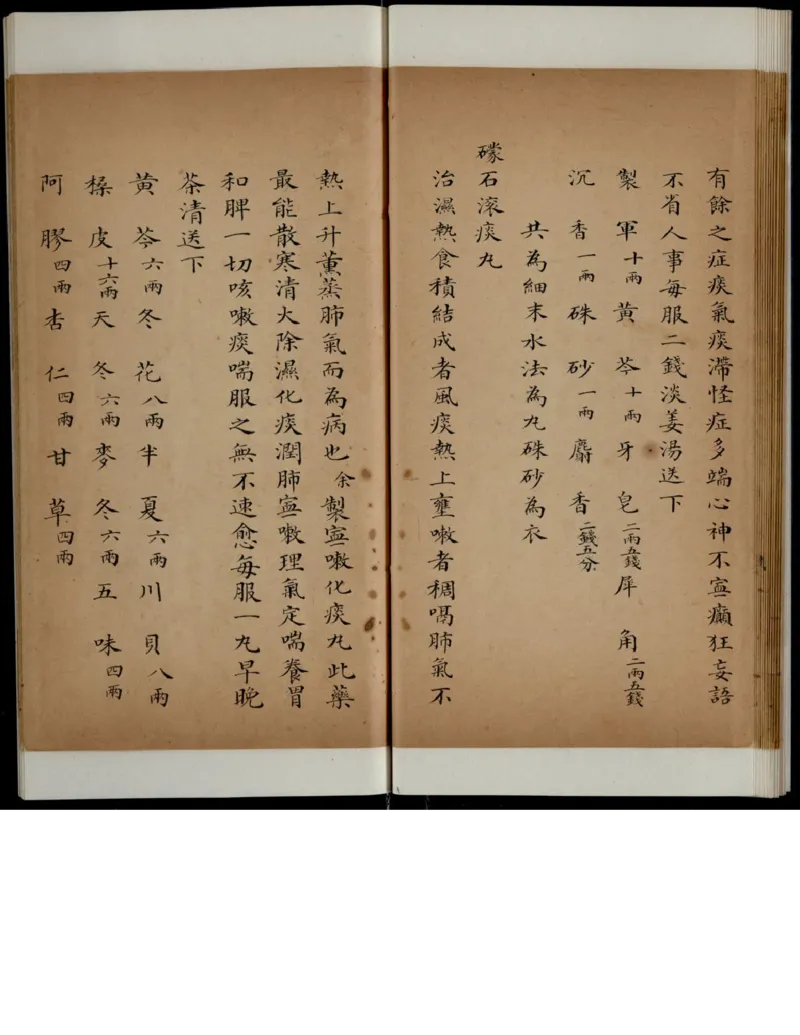 有餘之症痰氣痰滯怪症多端心神不寍癲狂妄語
不省人事每服二錢淡姜湯送下
製軍十兩黃芩十兩牙皂二兩五錢犀角二兩五錢
沉香一兩硃砂一兩麝香二錢五分
共為細末水法為丸硃砂為衣
礞石滚痰丸
治濕熱食積結成者風痰熱上壅嗽者稠喎肺氣不
熱上升薰蒸肺氣而為病也余製寍嗽化痰丸此藥
最能散寒清火除濕化痰潤肺寍嗽理氣定喘養胃
和脾一切咳嗽痰喘服之無不速愈每服一丸早晚
茶清送下
黃芩六兩冬花八兩半夏六兩川貝八兩
橾皮十六兩天冬六兩麥冬六兩五味四兩
阿膠四兩杏仁四兩甘草四兩